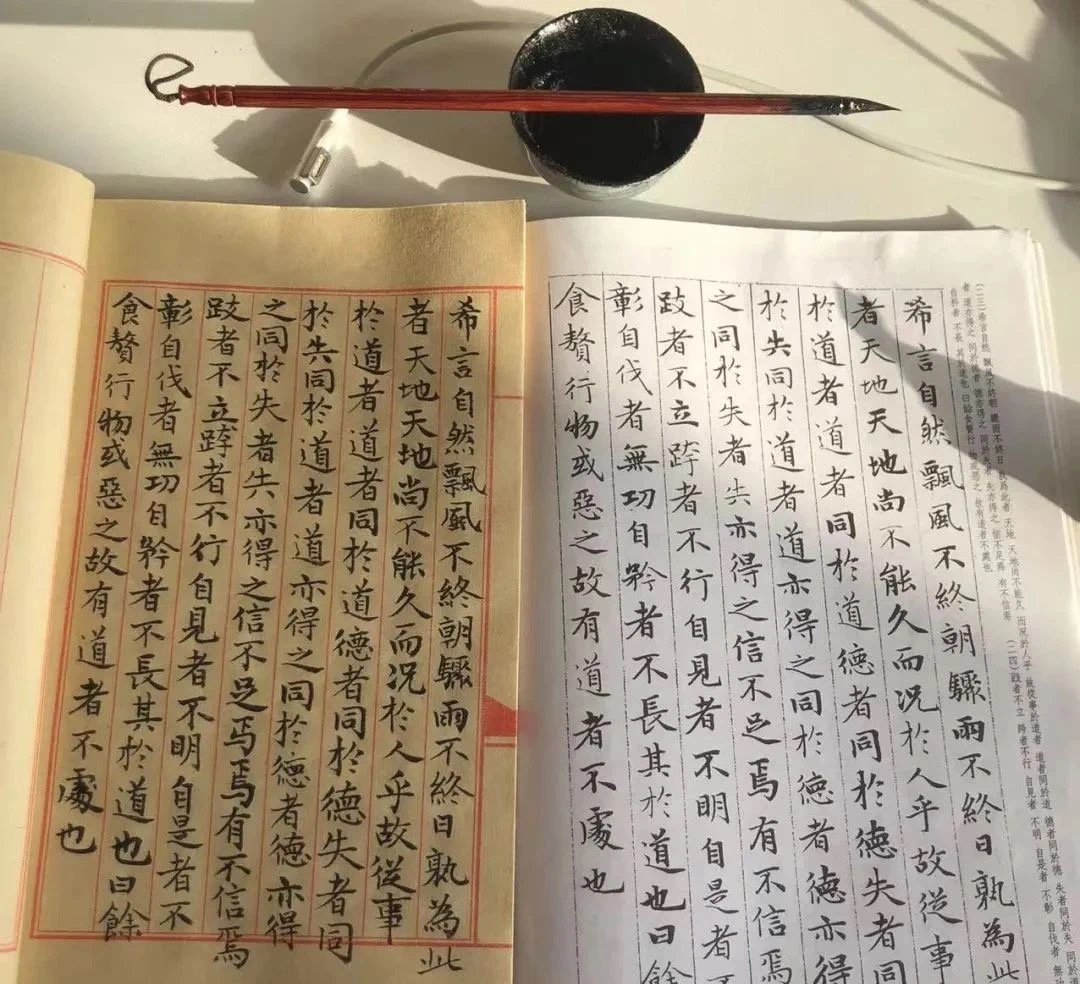 (二三)希自然 飄風不終朝 驟雨不終日 孰為此者 天地 天地尚不能久 而況於人乎 故從事於道者 道者同於道 德者同於德 失者同於失 同於道
者 道亦得之 同於德者 德亦得之 同於失者 失亦得之 信不足焉 有不信焉 (二四)跂者不立 跨者不行 自見者 不明 自是者 不彰 自伐者 無功
自矜者 不長 其於道也 曰餘食贅行 物或惡之 故有道者不處也
希言自然飄風不終朝驟雨不終日孰為此
者天地天地尚不能久而况於人乎故從事
於道者道者同於道德者同於德失者同
於失同於道者道亦得之同於德者德亦得
之同於失者失亦得之信不足焉有不信焉
跂者不立跨者不行自見者不明自是者不
彰自伐者無功自矜者不長其於道也曰餘
食贅行物或惡之故有道者不處也
希言自然飄風不終朝驟雨不終日孰為此
者天地天地尚不能久而况於人乎故從事
於道者道者同於道德者同於德失者同
於失同於道者道亦得之同於德者德亦得
之同於失者失亦得之信不足焉焉有不信焉
跂者不立跨者不行自見者不明自是者不
彰自伐者無功自矜者不長其於道也曰餘
食贅行物或惡之故有道者不處也